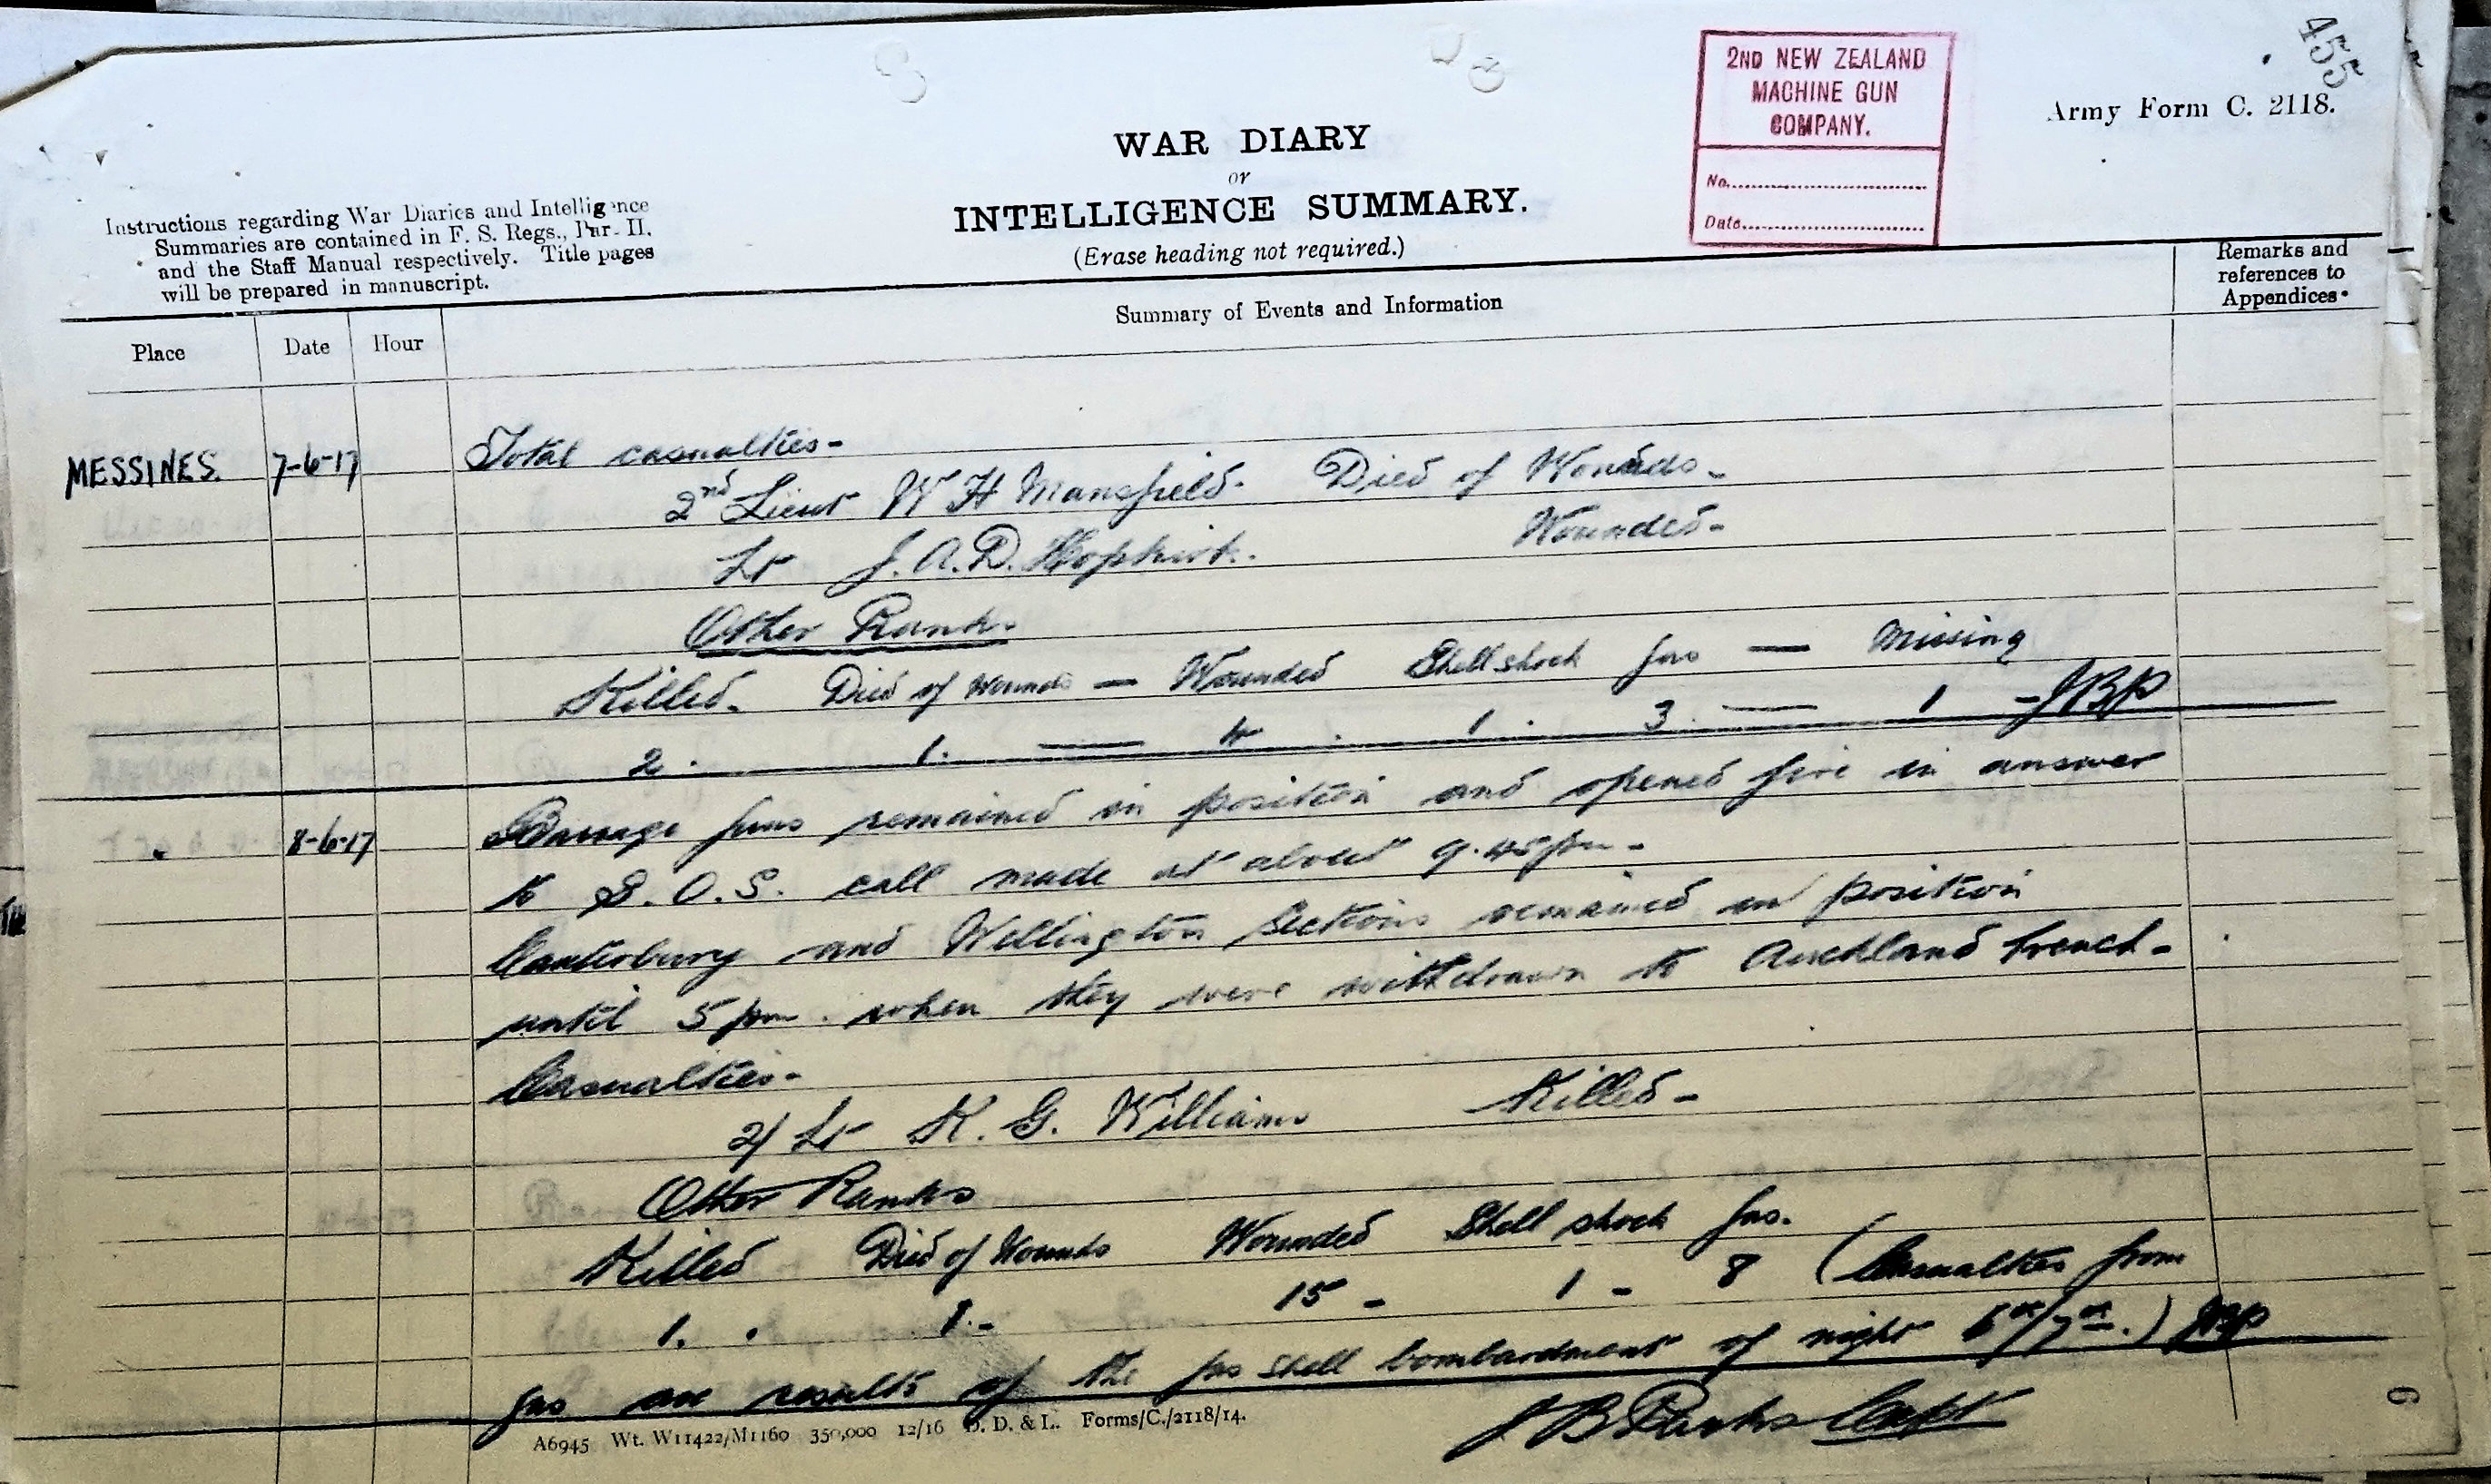 455
2ND NEW ZEALAND
MACHINE GUN
COMPANY.
No.
Date
Army Form C. 2118.
WAR DIARY
or
INTELLIGENCE SUMMARY.
(Erase heading not required.)
Instructions regarding War Diaries and Intelligence
Summaries are contained in F. S. Regs., Par. II.
and the Staff Manual respectively. Title pages
will be prepared in manuscript.
Place Date Hour Summary of Events and Information Remarks and
references to
Appendices.
MESSINES. 7-6-17 Total casualties-
2nd Lieut W H Mansfield. Died of Wounds-
Lt J. A. D. Hopkirk. Wounded-
Other Ranks.
Killed. Died of Wounds — Wounded Shell shock Gas — Missing
2. 1. — 4 . 1. 3. — 1 - JBP
" 8-6-17 Barrage guns remained in position and opened fire in answer
to S.O.S. call made at about 9.45pm-
Canterbury and Wellington Sections remained in position
until 5 pm. when they were withdrawn to Auckland trench-
Casualties-
2/Lt K. G. Williams Killed-
Other Ranks
Killed Died of Wounds Wounded Shell shock Gas.
1. . 1.- 15 - 1 - 8 (Casualties from
gas are results of the gas shell bombardment of night 6th/7th.) JBP
J B Parks Capt
A6945 Wt. W11422/M1160 350,000 12/16 D. D. & L. Forms/C./2118/14.